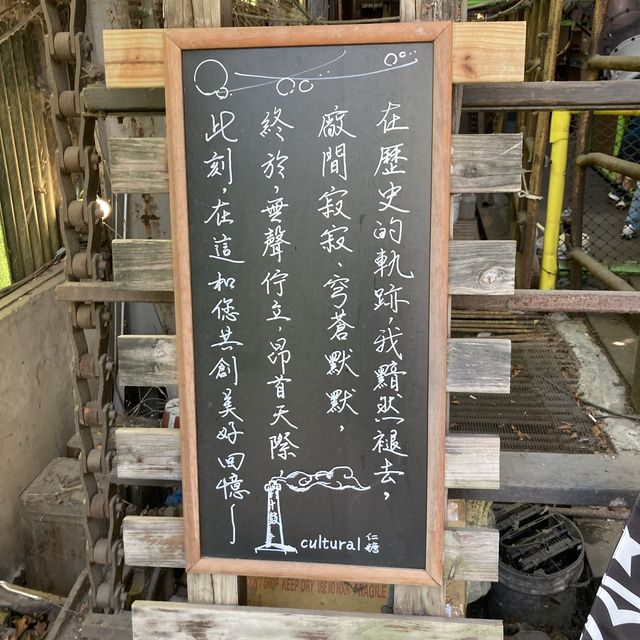 在歷史的軌跡，我黯然褪去，
廠間寂寂、穹蒼默默，
終於，無聲佇立，昂首天際
此刻，在這和您共創美好回憶～
cultural 仁糖
DROP KEEP DRY USE NO HOOK FRAGILE